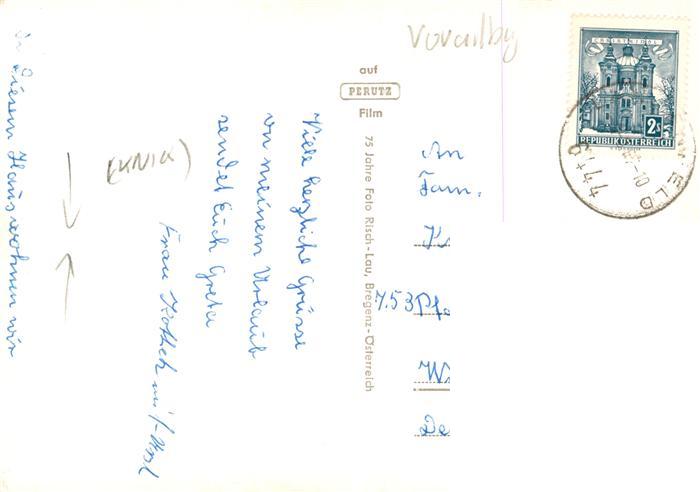 Vorarlbg
auf
PERUTZ
Film
75 Jahre Foto Risch-Lau, Bregenz-Österreich
CHRISTKINDL
2 S
REPUBLIK ÖSTERREICH
In diesem Haus wohnen wir
(KNIA)
Viele herzliche Grüsse
von meinem Urlaub
sendet Euch Greta
Frau
An
Fam.
K
753 Pfo
W
De